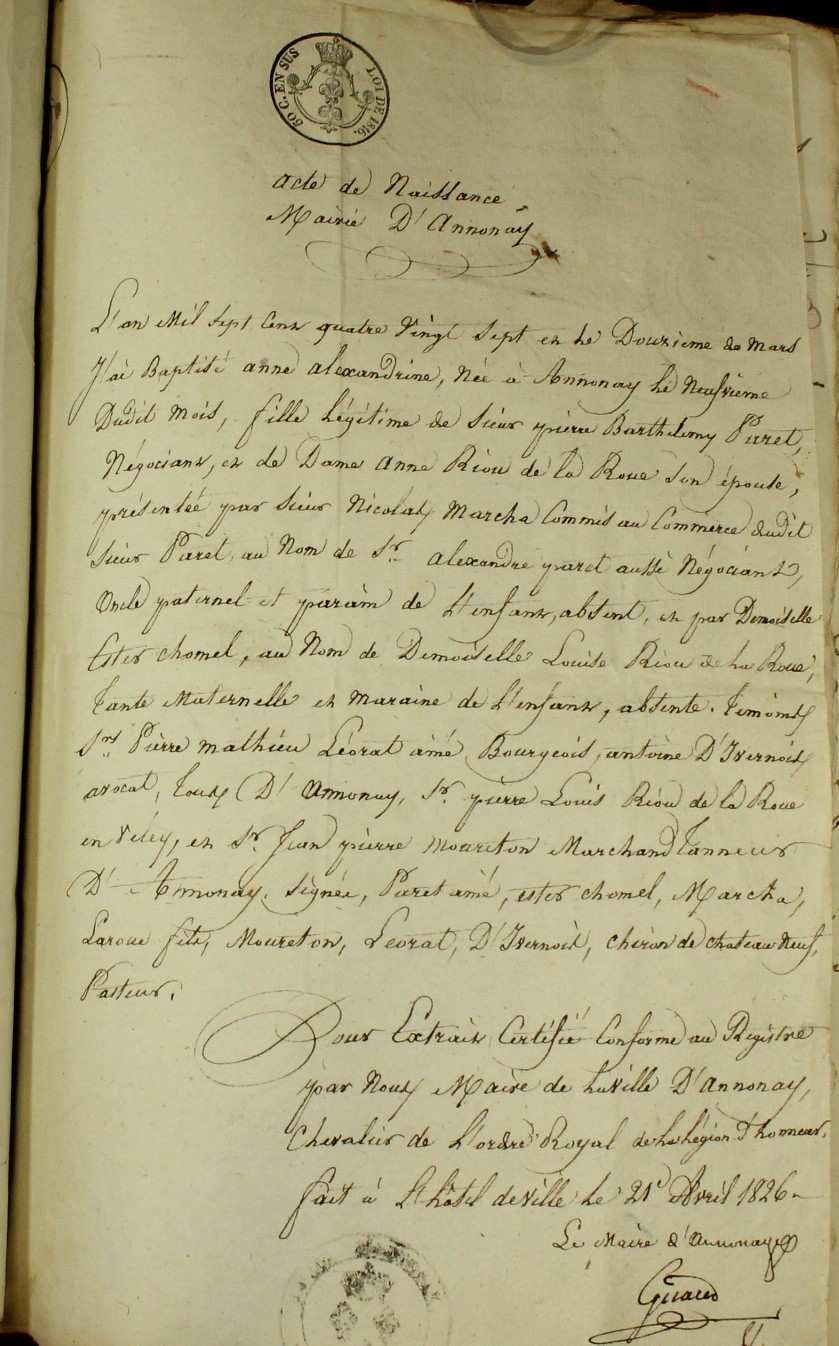 50 C. EN SUS LOI DE 1816.
acte de Naissance
Mairie D'Annonay
L'an Mil Sept Cent quatre Vingt Sept et le Douzieme de Mars
J'ai Baptisé anne alexandrine, Née à Annonay le Neufvieme
Dudit Mois, fille légitime de Sieur pierre Barthelemy Paret,
Négociant, et de Dame Anne Riou de la Roue Son épouse,
présentée par Sieur Nicolas Marcha Commis au Commerce dudit
Sieur Paret, au Nom de Sr. alexandre paret aussi Négociant,
Oncle paternel et parain de L'enfant, absent, et par Demoiselle
Ester chomel, au Nom de Demoiselle Louise Riou de la Roue,
Tante Maternelle et Maraine de L'enfant, absente. Temoins
Srs. Pierre mathieu Léorat ainé, Bourgeois, antoine D'Ivernois
avocat, Tous D'Annonay, Sr. pierre Louis Riou de la Roue
en Veley, et Sr. Jean pierre Moureton Marchand Tanneur
D'Annonay. Signée, Paret ainé, ester chomel, Marcha,
Laroue fils, Moureton, Leorat, D'Ivernois, chiron de chateau Neuf,
Pasteur.
Pour Extrait Certifié Conforme au Registre
par Nous Maire de la Ville D'Annonay,
Chevalier de L'ordre Royal de la Légion D'honneur.
fait à L'hôtel de Ville le 21e Avril 1826.
Le Maire d'Annonay